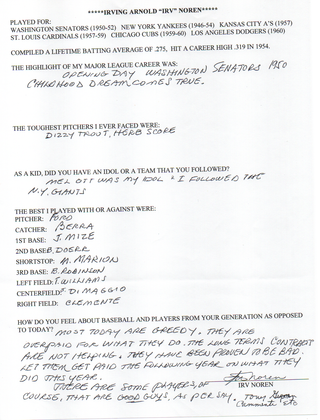 *****IRVING ARNOLD “IRV” NOREN*****
PLAYED FOR:
WASHINGTON SENATORS (1950-52) NEW YORK YANKEES (1946-54) KANSAS CITY A'S (1957)
ST. LOUIS CARDINALS (1957-59) CHICAGO CUBS (1959-60) LOS ANGELES DODGERS (1960)
COMPILED A LIFETIME BATTING AVERAGE OF .275, HIT A CAREER HIGH .319 IN 1954.
THE HIGHLIGHT OF MY MAJOR LEAGUE CAREER WAS:
OPENING DAY WASHINGTON SENATORS 1950
CHILDHOOD DREAM COMES TRUE.
THE TOUGHEST PITCHERS I EVER FACED WERE:
DIZZY TROUT, HERB SCORE
AS A KID, DID YOU HAVE AN IDOL OR A TEAM THAT YOU FOLLOWED?
MEL OTT WAS MY IDOL & I FOLLOWED THE
N.Y. GIANTS
THE BEST I PLAYED WITH OR AGAINST WERE:
PITCHER: FORD
CATCHER: BERRA
1ST BASE: J. MIZE
2ND BASE: B. DOERR
SHORTSTOP: M. MARION
3RD BASE: B. ROBINSON
LEFT FIELD: T. WILLIAMS
CENTERFIELD: J. DIMAGGIO
RIGHT FIELD: CLEMENTE
HOW DO YOU FEEL ABOUT BASEBALL AND PLAYERS FROM YOUR GENERATION AS OPPOSED
TO TODAY? MOST TODAY ARE GREEDY. THEY ARE
OVERPAID FOR WHAT THEY DO. THE LONG TERMS CONTRACT
ARE NOT HELPING. THEY HAVE BEEN PROVEN TO BE BAD.
LET THEM GET PAID THE FOLLOWING YEAR ON WHAT THEY
DID THIS YEAR. Irv Noren
IRV NOREN
THERE ARE SOME PLAYERS, OF
COURSE, THAT ARE GOOD GUYS, AS PER SAY. TONY GWYNN
ETC